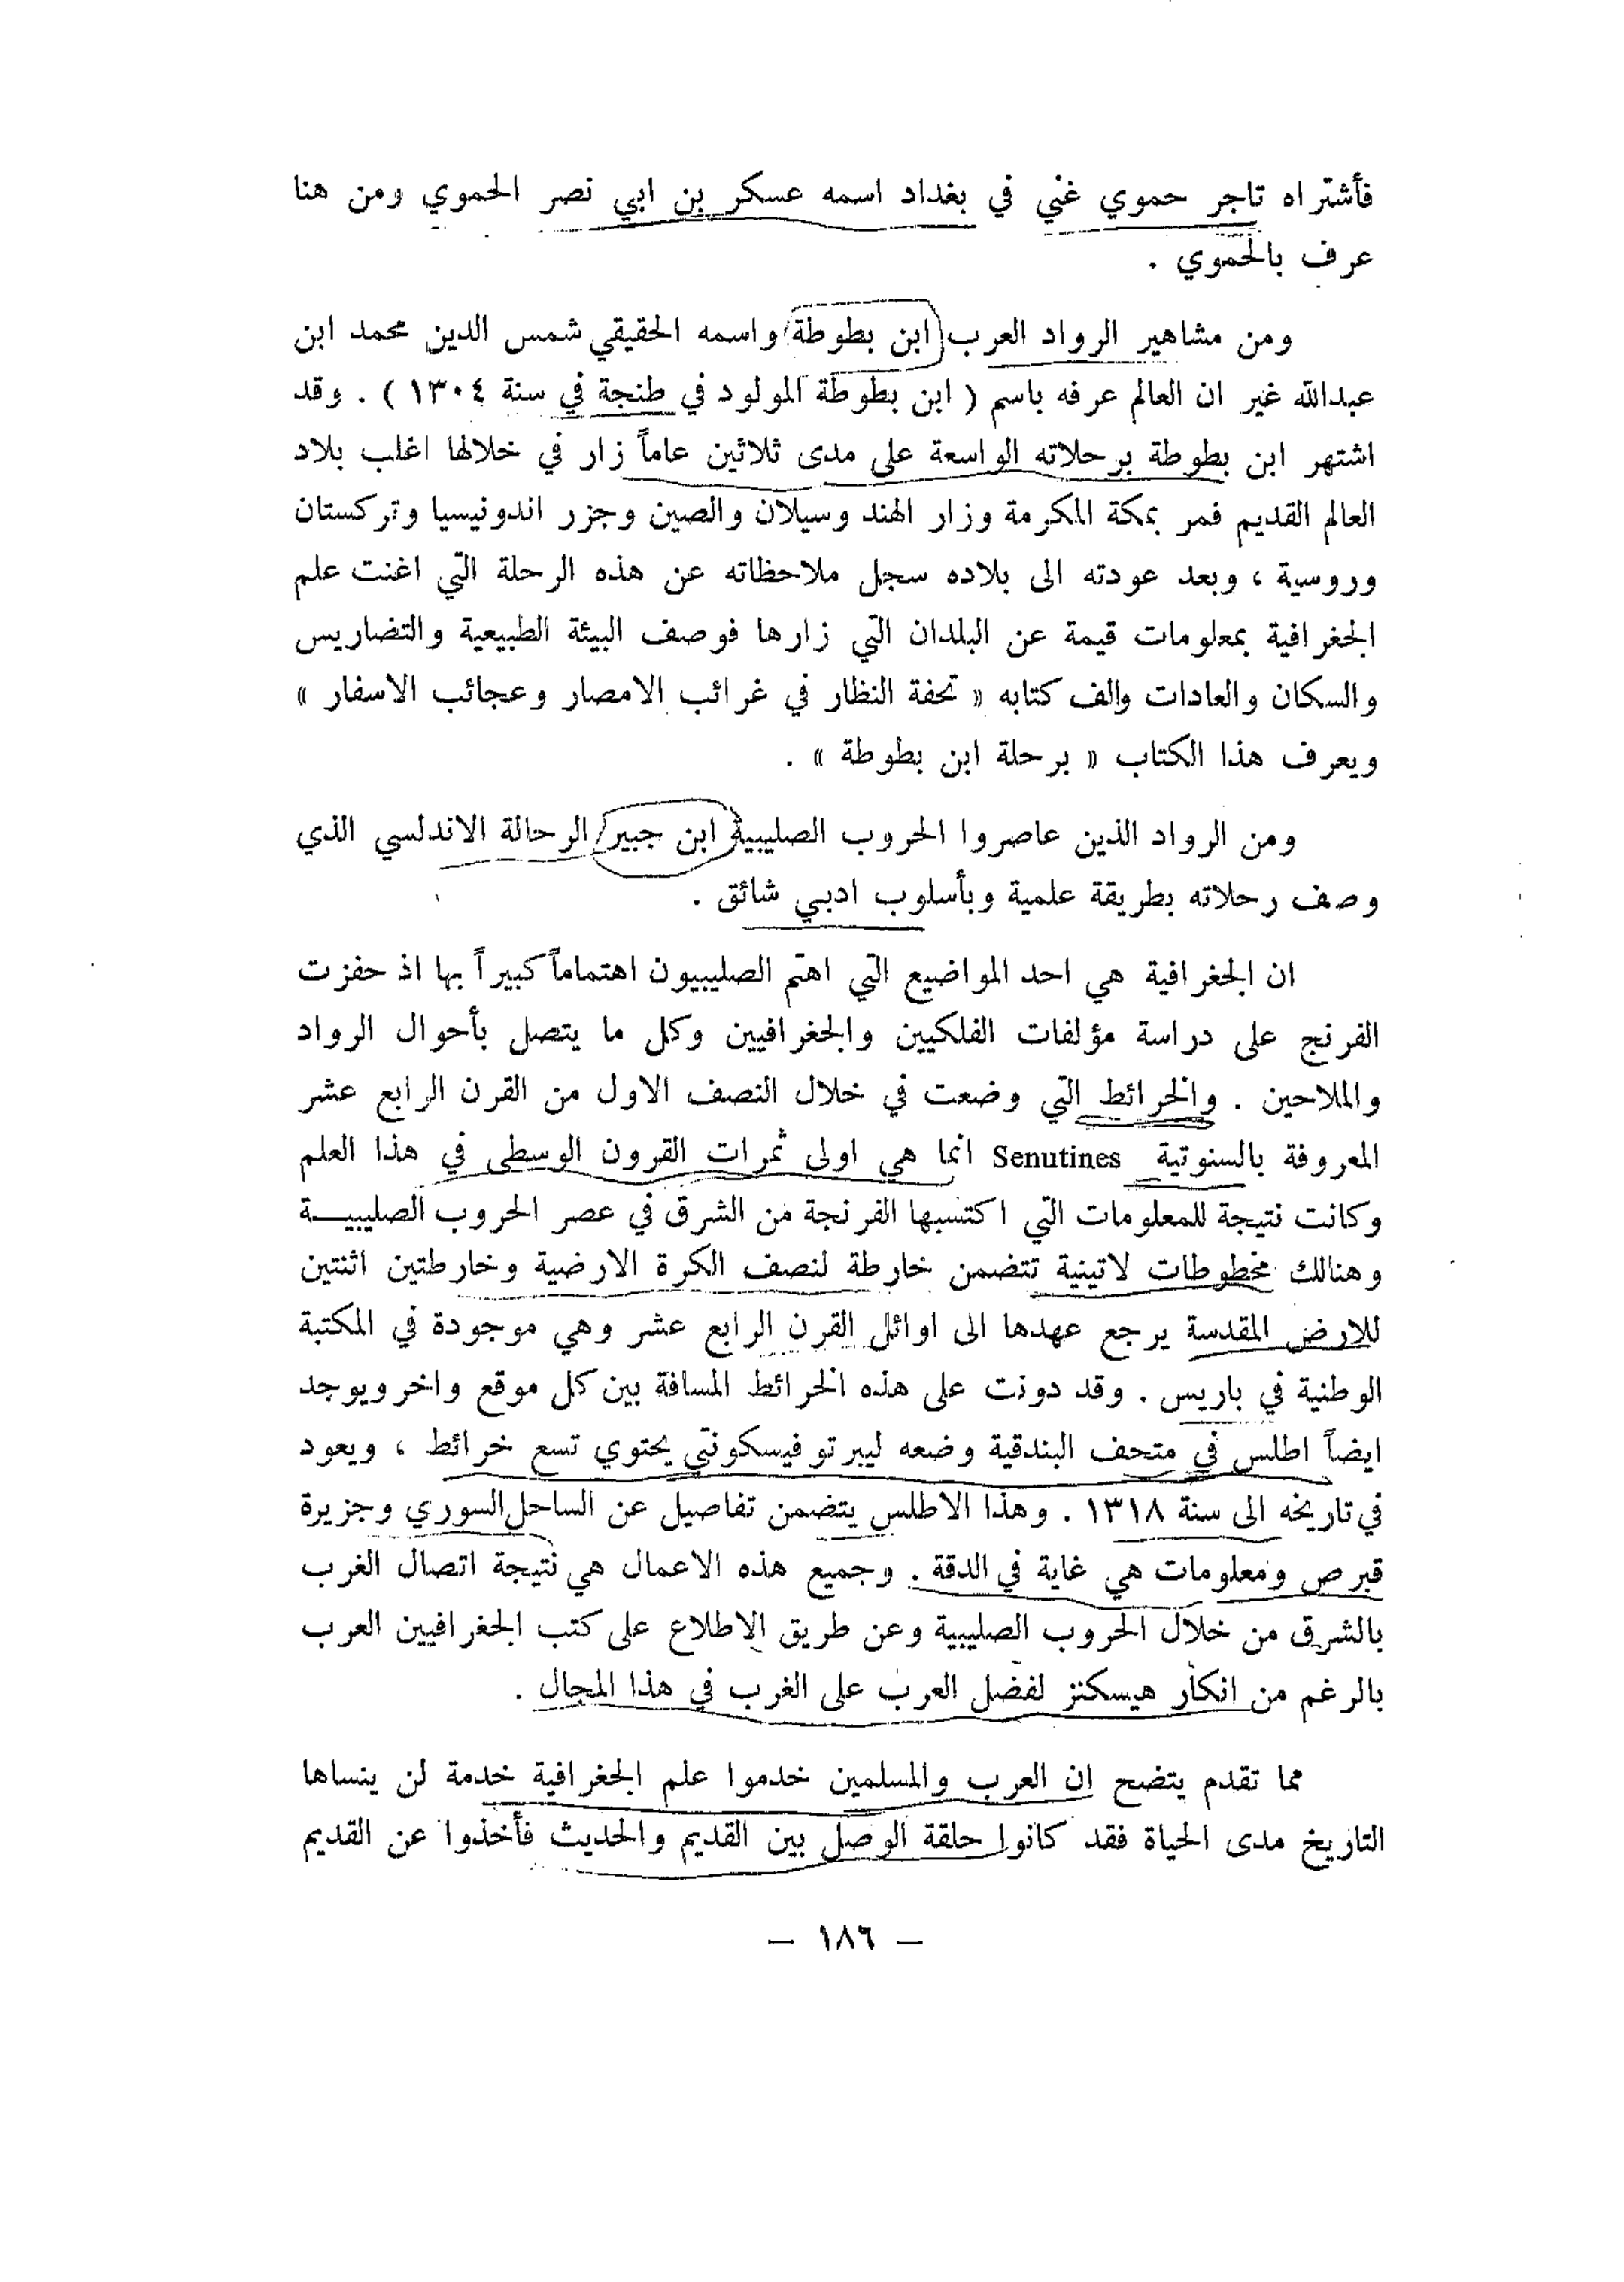 فأشتراه تاجر حموي غني في بغداد اسمه عسكر بن ابي نصر الحموي ومن هنا
عرف بالحموي .
ومن مشاهير الرواد العرب ابن بطوطة واسمه الحقيقي شمس الدين محمد ابن
عبدالله غير ان العالم عرفه باسم ( ابن بطوطة المولود في طنجة في سنة ١٣٠٤ ) . وقد
اشتهر ابن بطوطة برحلاته الواسعة على مدى ثلاثين عاماً زار في خلالها اغلب بلاد
العالم القديم فمر بمكة المكرمة وزار الهند وسيلان والصين وجزر اندونيسيا وتركستان
وروسية ، وبعد عودته الى بلاده سجل ملاحظاته عن هذه الرحلة التي اغنت علم
الجغرافية بمعلومات قيمة عن البلدان التي زارها فوصف البيئة الطبيعية والتضاريس
والسكان والعادات والف كتابه « تحفة النظار في غرائب الامصار وعجائب الاسفار »
ويعرف هذا الكتاب « برحلة ابن بطوطة » .
ومن الرواد الذين عاصروا الحروب الصليبية ابن جبير الرحالة الاندلسي الذي
وصف رحلاته بطريقة علمية وبأسلوب ادبي شائق .
ان الجغرافية هي احد المواضيع التي اهتم الصليبيون اهتماماً كبيراً بها اذ حفزت
الفرنج على دراسة مؤلفات الفلكيين والجغرافيين وكل ما يتصل بأحوال الرواد
والملاحين . والخرائط التي وضعت في خلال النصف الاول من القرن الرابع عشر
المعروفة بالسنوتية Senutines انما هي اولى ثمرات القرون الوسطى في هذا العلم
وكانت نتيجة للمعلومات التي اكتسبها الفرنجة من الشرق في عصر الحروب الصليبيــة
وهنالك مخطوطات لاتينية تتضمن خارطة لنصف الكرة الارضية وخارطتين اثنتين
للارض المقدسة يرجع عهدها الى اوائل القرن الرابع عشر وهي موجودة في المكتبة
الوطنية في باريس . وقد دونت على هذه الخرائط المسافة بين كل موقع واخر ويوجد
ايضاً اطلس في متحف البندقية وضعه ليبرتو فيسكونتي يحتوي تسع خرائط ، ويعود
في تاريخه الى سنة ١٣١٨ . وهذا الاطلس يتضمن تفاصيل عن الساحل السوري وجزيرة
قبرص ومعلومات هي غاية في الدقة . وجميع هذه الاعمال هي نتيجة اتصال الغرب
بالشرق من خلال الحروب الصليبية وعن طريق الاطلاع على كتب الجغرافيين العرب
بالرغم من انكار هيسكنز لفضل العرب على الغرب في هذا المجال .
مما تقدم يتضح ان العرب والمسلمين خدموا علم الجغرافية خدمة لن ينساها
التاريخ مدى الحياة فقد كانوا حلقة الوصل بين القديم والحديث فأخذوا عن القديم
– ١٨٦ –